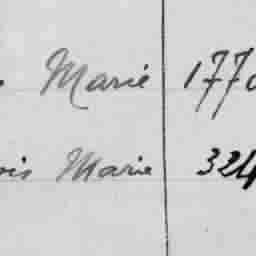 Marie 177
Marie 324